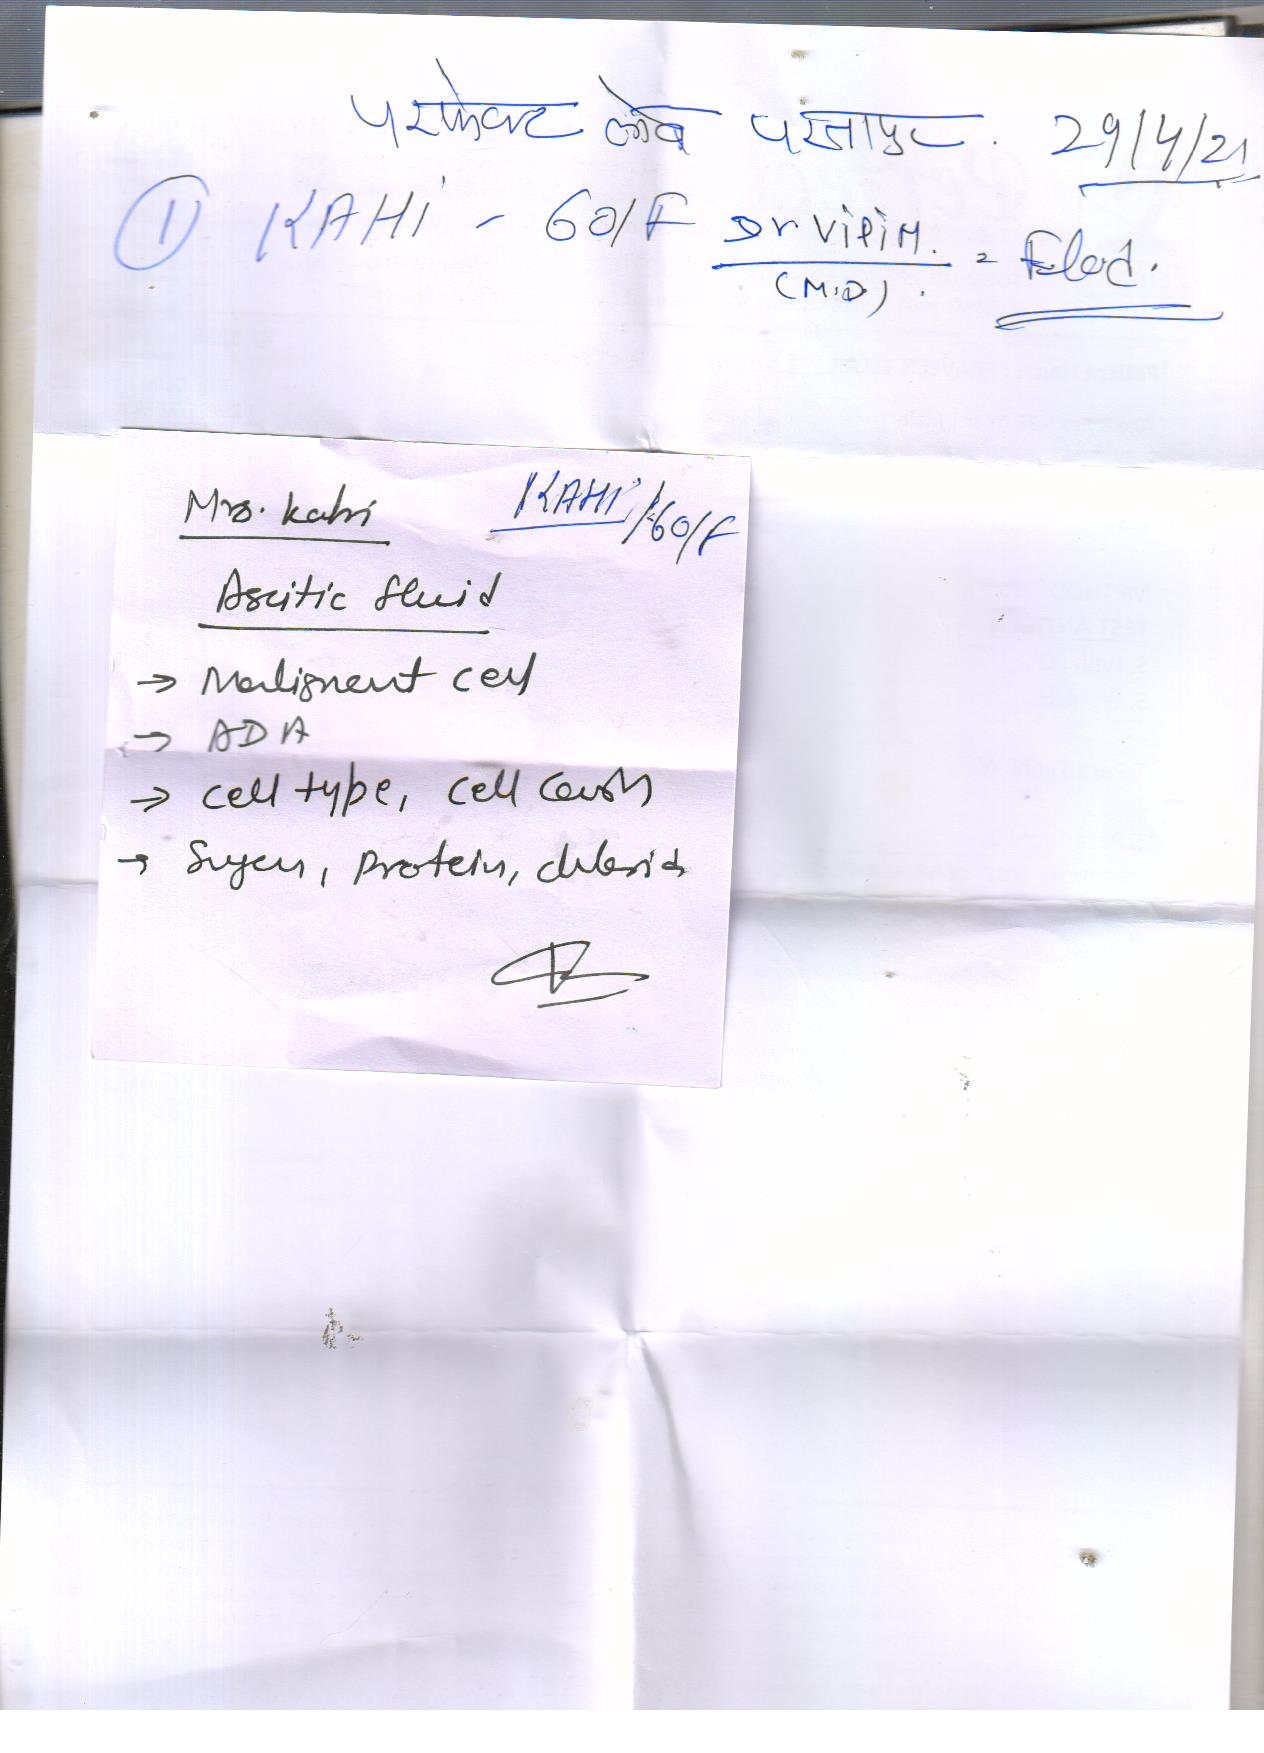 परफेक्ट लैब परतापुर. 29/4/21
① KAHI - 60/F Dr ViPiN. =
(M.D).
Mrs. Kahi KAHI/60/F
Ascitic fluid
→ Malignent cell
→ ADA
→ cell type, cell count
→ Sugar, Protein, chloride